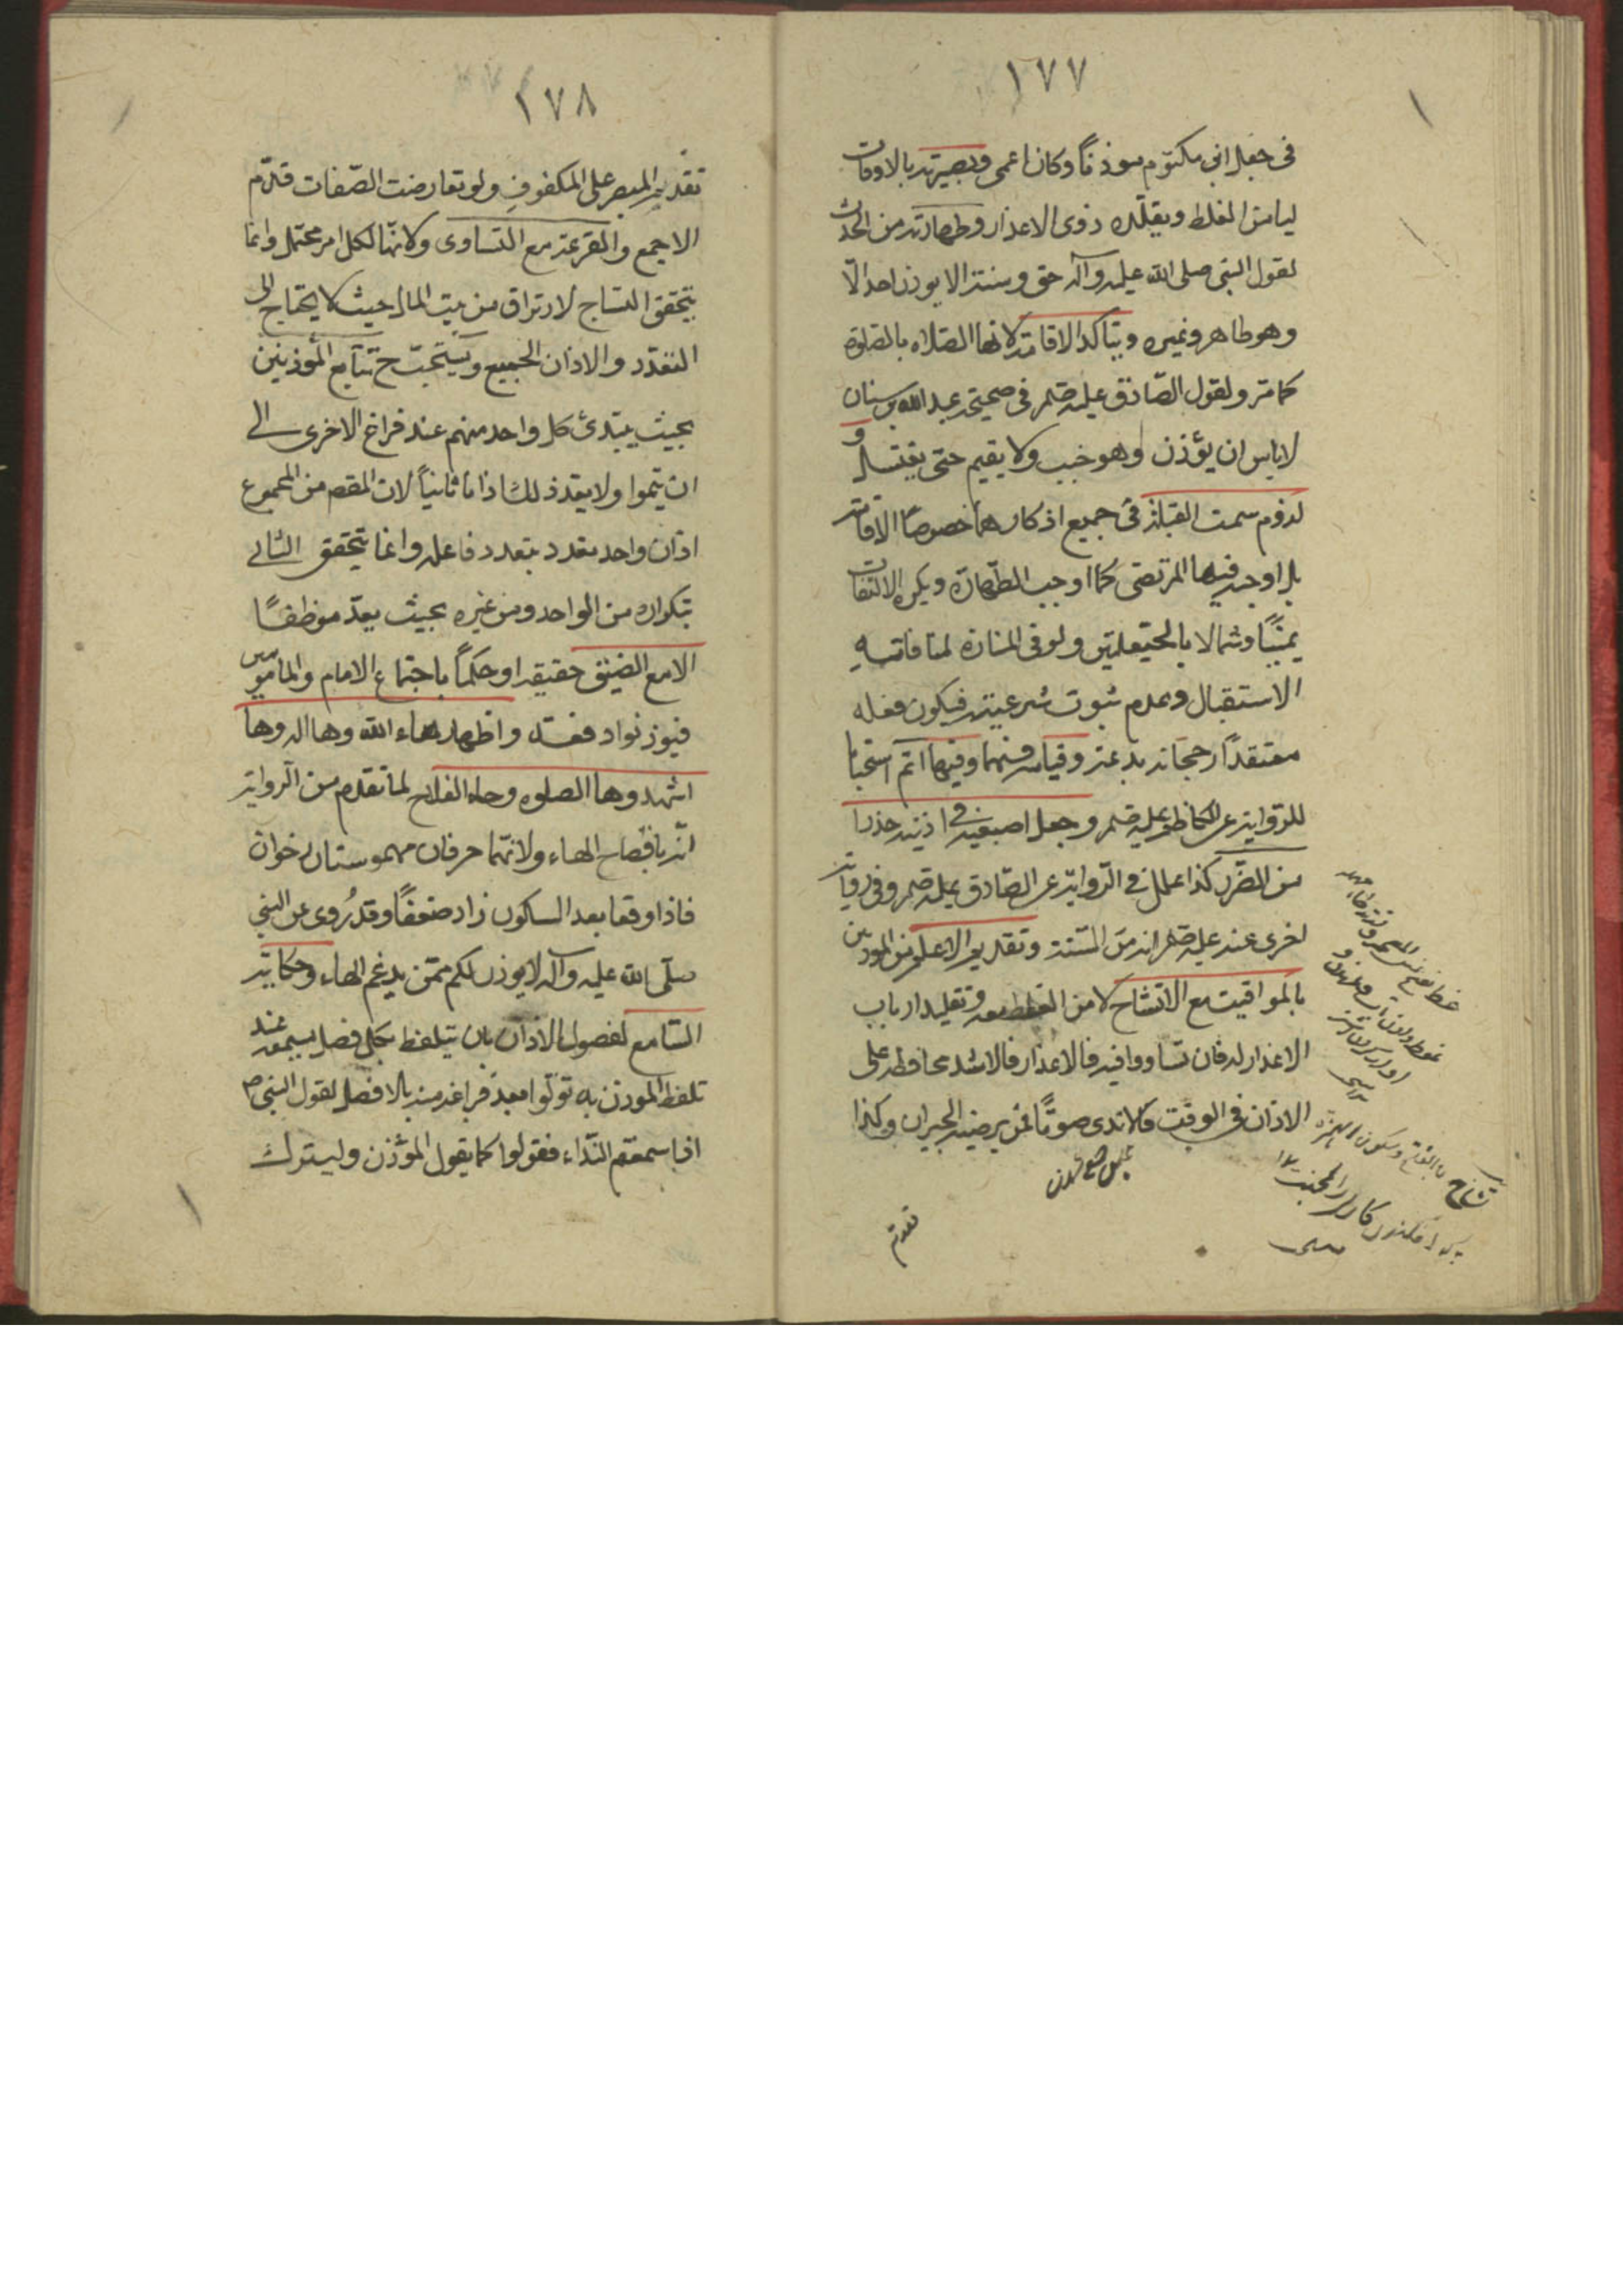 ١٧٧
فى جعل ابن مكتوم موذناً وكان اعمى وبصيرته بالاوقات
ليامن الغلط ويقلّده ذوى الاعذار وطهارته من الحدث
لقول النبى صلى الله عليه وآله حق وسنة الا يوذن احد الّا
وهو طاهر وغيره ويتاكد الاقامة لانها الصلاه بالصلوة
كما مر ولقول الصّادق عليه صلم فى صحيحة عبد الله بن سنان
لاباس ان يؤذن وهو جنب ولا يقيم حتى يغتسل و
لزوم سمت القبلة فى جميع اذكارهما خصوصاً الاقامة
بل اوجبه فيها المرتضى كما اوجب الطّهارة ويكره الالتفات
يميناً وشمالا بالحيّعلتين ولو فى المنارة لمنافاته
الاستقبال وعدم ثبوت شرعيته فيكون فعله
معتقداً رجحانه بدعة وقيامه فيهما وفيها اتم استحبابا
للرّواية عن الكاظم عليه صلم وجعل اصبعيه فى اذنيه حذرا
من الضّرر كذا علل فى الرّواية عن الصّادق عليه صلم وفى رواية
اخرى عنه عليه صلم انه من السّنة وتقديم الاعلم من الموذنين
بالمواقيت مع التشاح لامن الغلط معه وتقليد ارباب
الاعذار له فان تساووا فيه فالاعذار فالاشد محافظة على
الاذان فى الوقت فالاندى صوتاً فمن يرضيه الجيران وكذا
تقديم
١٧٨
تقديم المبصر على المكفوف ولو تعارضت الصّفات قدّم
الاجمع والقرعة مع التساوى ولانّها لكل امر محتمل وانما
يتحقق التساح لارتزاق من بيت المال حيث لا يحتاج الى
التعدّد والاذان الجميع ويستحبّ ح تتابع المؤذنين
بحيث يبتدئ كل واحد منهم عند فراغ الاخرى الى
ان يتموا ولا يعد ذلك اذانا ثانياً لان المقصم من المجموع
اذان واحد بعدد بتعدد فاعله وانما يتحقق الثانى
بتكراره من الواحد ومن غيره بحيث يعدّ موظفاً
الامع الضيق حقيقة او حكماً باجتماع الامام والمامومين
فيوذنوا دفعة واظهار هاء الله وها اله وها
اشهد وها الصلوه وحاء الفلاح لما تقدم من الرواية
انّه بافصاح الهاء ولانّهما حرفان مهموستان رخوان
فاذا وقعا بعد السكون زاد ضعفاً وقد رُوى عن النبى
صلّى الله عليه وآله لا يوذن لكم ممّن يدغم الهاء وحكاية
السّامع لفصول الاذان بان يتلفظ بكل فصل يسمعه عند
تلفظ الموذن به توّلوا معبد فراغه منه بلا فصل لقول النبى ص
اذا سمعتم النّداء فقولوا كما يقول المؤذن وليترك